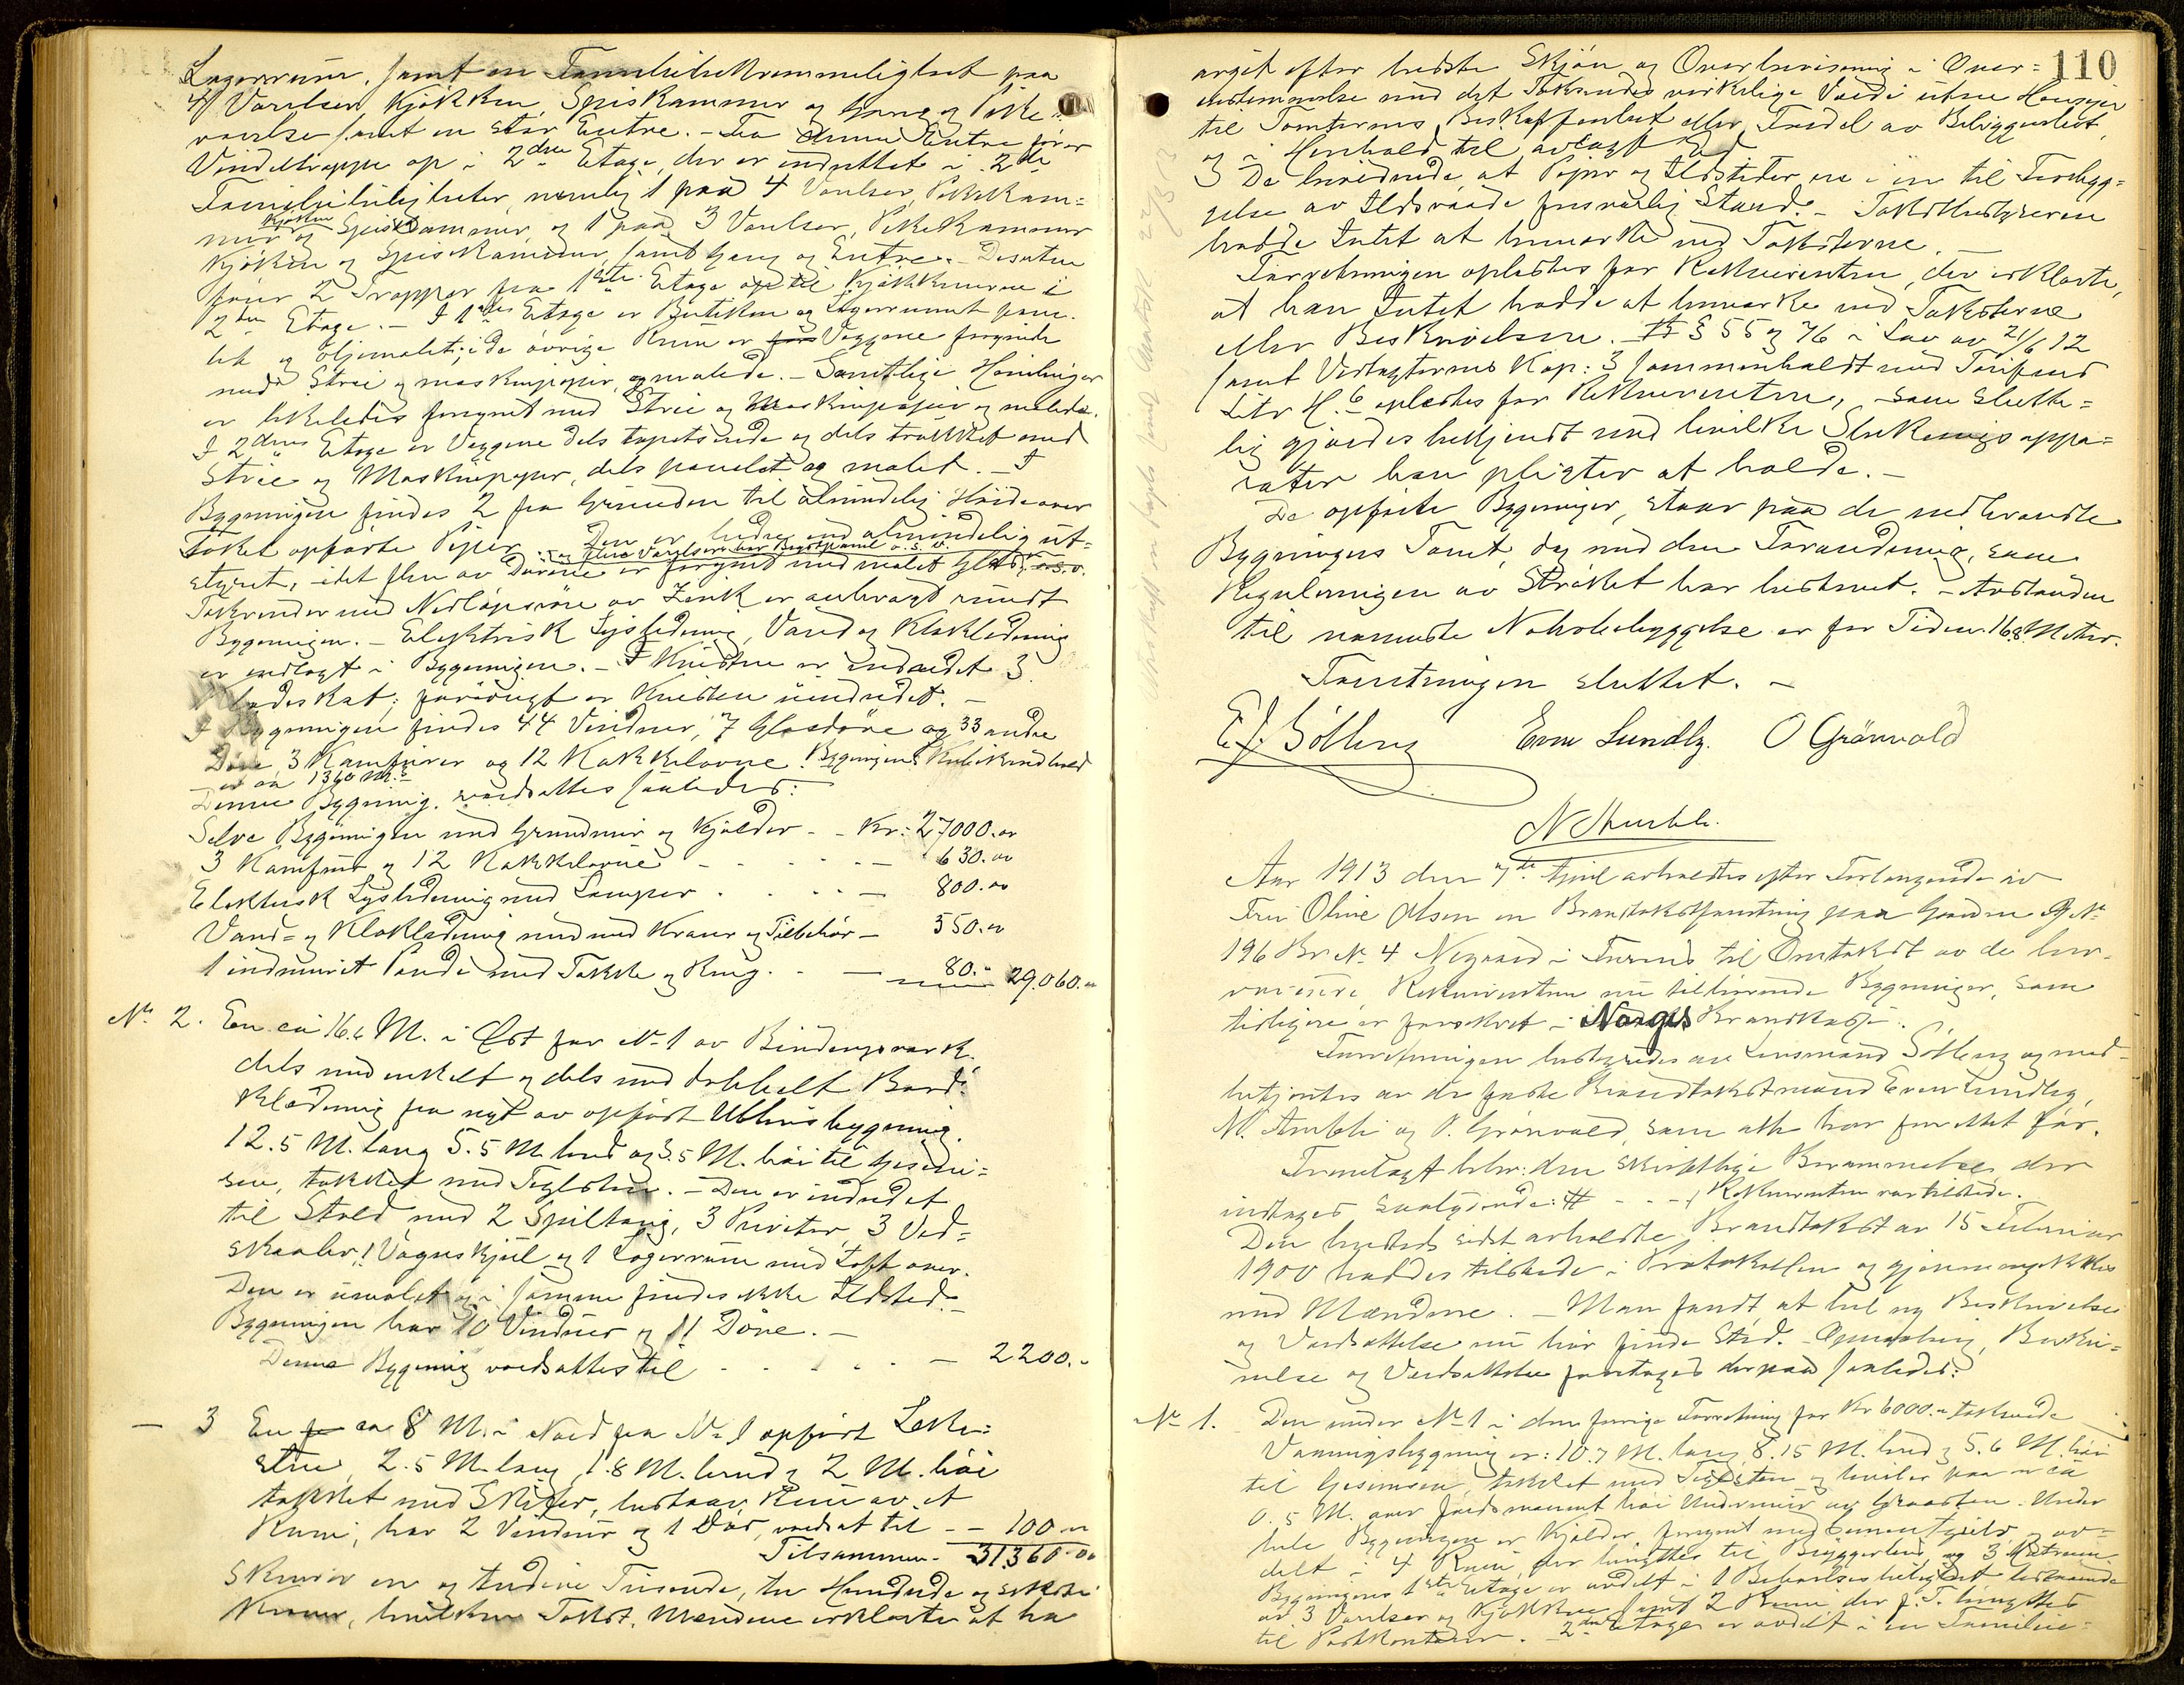 Lagerrum, samt en Familiebekvemmelighet paa
4 Værelser, Kjøkken, Spiskammer og Gang og Pike-
værelse samt en stor Entre. - Fra denne Entre fører
Vindeltrappe op i 2den Etage, der er indrettet i 2de
Familieleiligheter, nemlig 1 paa 4 Værelser, Pikekam=
mer Kjøkken og Spiskammer, og 1 paa 3 Værelser, Pikekammer
Kjøkken og Spiskammer, samt Gang og Entre. - Desuten
fører 2 Trapper fra 1ste Etage op til Kjøkkenerne i
2den Etage. - I 1ste Etage er Butiken og Lagerrummet pane-
let og oljemalet; i de øvrige Rum er Væggene forsynede
med Strie og maskinpapir, og malede. - Samtlige Himlinger
er likeledes forsynet med Strie og Maskinpapir og malede.
I 2den Etage er Væggene dels tapetserede og dels trukket med
Strie og Maskinpapir, dels panelet og malet. - I
Bygningen findes 2 fra Grunden til almindelig Høide over
Taket opførte Piper. Den er bedre end almindelig ut=
og flere Værelser har Brystpanel o.s.v.
styret, idet flere av Dørene er forsynet med malet Glas, o.s.v.
Takrender med Nedløpsrør av Zink er anbragt rundt
Bygningen. - Elektrisk Lysledning, Vand og Kloakledning
er indlagt i Bygningen. - I Kvisten er indredet 3
forøvrigt er Kvisten uindredet. -
I Bygningen findes 44 Vinduer, 7 Glasdøre og 33 andre
Døre, 3 Komfurer og 12 Kakkelovne. Bygningens Kubikindhold
er ca 1360 M.3
Denne Bygning værdsattes saaledes:
Selve Bygningen med Grundmur og Kjælder - - Kr: 27000.00
3 Komfurer og 12 Kakkelovne - - - - - 630.00
Elektrisk Lysledning med Lamper - - - - 800.00
Vand= og Kloakledning med Kraner og Tilbehør - 550.00
1 indmuret Pande med Takke og Ring - - 80.- 29.060.-
No 2. En ca 16.6 M. i Øst for No 1 av Bindingsverk
dels med enkelt og dels med dobbelt Bord=
klædning fra nyt av opført Uthusbygning.
12.5 M. lang 5.5 M. bred og 3.5 M. høi til Gesim=
sen, takket med Teglsten. - Den er indredet
til Stald med 2 Spiltaug, 3 Priveter, 3 Ved=
skaaler, 1 Vognskjul og 1 Lagerrum med Loft over.
Den er umalet og i samme findes ikke Ildsted. -
Bygningen har 10 Vinduer og 11 Døre. -
Denne Bygning værdsattes til - - - - - 2200.-
- 3 En ca 8 M. i Nord fra No 1 opført Leke=
stue, 2.5 M. lang 1.8 M. bred og 2 M. høi
takket med Skifer, bestaar kun av et
Rum, har 2 Vinduer og 1 Dør, værdsat til - - 100.00
Tilsammen - 31.360.00
Skriver en og tredive Tusende, tre Hundrede og seksti
Kroner, hvilken Takst, Mændene erklærte at ha
110
avgit efter bedste Skjøn og Overbevisning i Over=
ensstemmelse med det Takseredes virkelige Værdi uten Hensyn
til Tomternes Beskaffenhet eller Fordel av Beliggenhet,
og i Henhold til avlagt Ed
De bevidnede, at Piper og Ildsteder er i en til Forebyg=
gelse av Ildsvaade forsvarlig Stand. - Takstbestyreren
hadde Intet at bemærke ved Taksterne. -
Forretningen oplæstes for Rekvirenten, der erklærte,
at han Intet hadde at bemærke ved Taksterne
eller Beskrivelsen. § 55 og 76 i Lov av 21/6 12
samt Vedtægternes Kap: 3 sammenholdt med Tarifens
Litr H. 6 oplæstes for Rekvirenten, som slutte=
lig gjordes bekjendt med hvilke Slukningsappa=
rater han pligter at holde. -
De opførte Bygninger, staar paa de nedbrændte
Bygningers Tomt, dog med den Forandring, som
Reguleringen av Strøket har bestemt. - Avstanden
til nærmeste Nabobebyggelse er for Tiden 16.8 Meter.
Forretningen sluttet. -
E.J. Sølberg Even Lundby. O Grønvold
N Aurbli.
Aar 1913 den 7de April avholdtes efter Forlangende av
Fru Oline Olsen en Brandtakstforretning paa Gaarden G No
196 Br No 4 Nygaard i Furnes til Omtakst av de her-
værende, Rekvirenten nu tilhørende Bygninger, som
tidligere er forsikret i Norges Brandkasse.
Forretningen bestyredes av Lensmand Sølberg og med-
betjentes av de faste Brandtakstmænd Even Lundby,
N. Aurbli og O. Grønvold, som alle har forrettet før.
Fremlagt blev: den skriftlige Berammelse, der
indtages saalydende: # - - - Rekvirenten var tilstede.
Den herstede sidst avholdte Brandtakst av 15 Februar
1900 haddes tilstede i Protokollen og gjennemgikkes
med Mændene. - Man fandt, at hel ny Beskrivelse
og Værdsættelse nu bør finde Sted. Opmaaling, Beskri=
velse og Værdsættelse foretoges derpaa saaledes:
No 1. Den under No 1 i den forrige Forretning for Kr 6000.- takserede
Vaaningsbygning er: 10.7 M. lang 8.15 M. bred og 5.6 M. høi
til Gesimsen, takket med Teglsten og hviler paa en ca
0.5 M. over Jordsmonnet høi Undermur av Graasten. Under
hele Bygningen er Kjælder, forsynet med Cementgulv og av=
delt i 4 Rum, der benyttes til Bryggerhus og 3 Matrum.
Bygningens 1ste Etage er avdelt i 1 Beboelsesleilighet bestaaende
av 3 Værelser og Kjøkken samt 2 Rum, der f. T. benyttes
til Postkontor. - 2den Etage er avdelt i en Familie=